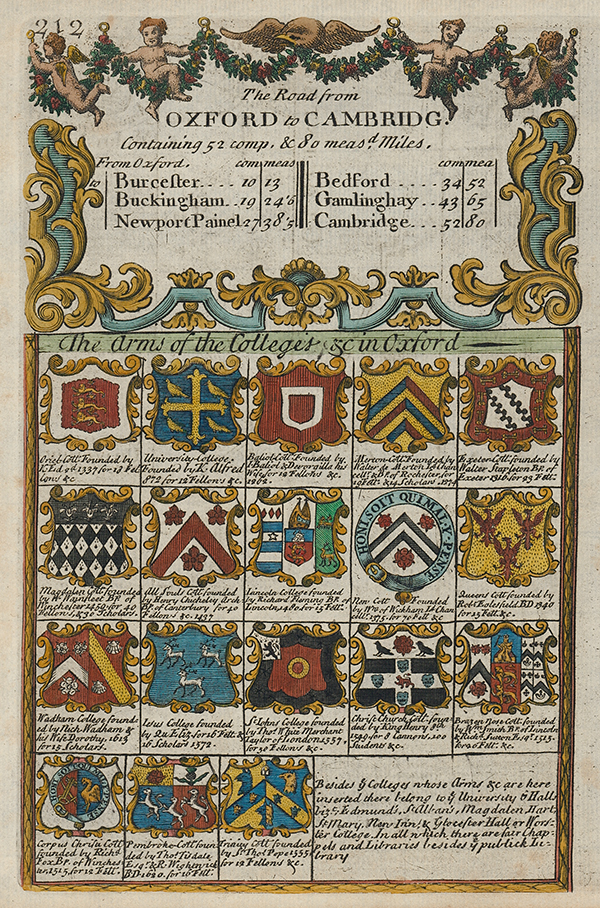 212
The Road from
OXFORD to CAMBRIDG.
Containing 52 comp. & 80 meas.d Miles.
From Oxford. com meas
to Burcester.... 10 13
Buckingham.. 19 24'6
Newport Painel 27 38'5
com mea
Bedford .... 34 52
Gamlinghay .. 43 65
Cambridge... 52 80
The Arms of the College's &c in Oxford
Oriel Coll. Founded by
K. Ed. 2d 1337 for 18 Fel
lons &c
University College
Founded by K. Alfred
872 for 12 Fellons &c.
Baliol Coll. Founded by
I. Baliol & Dervorgilla his
Wife for 12 Fellons &c.
1262.
Merton Coll. Founded by
Walter de Merton Ld Chan
cell. & Bp. of Rochester, for
19 Fell.s & 14 Scholars. 1274
Exeter Coll. founded by
Walter Stapleton Bp. of
Exeter 1316 for 23 Fell.s
Magdalen Coll. founded
by W. Wainfleet Bp. of
Winchester 1459 for 40
Fellons, & 30 Scholars.
All Souls Coll. founded
by Henry Chicheley Arch
Bp. of Canterbury for 40
Fellons &c. 1437
Lincoln College founded
by Richard Fleming Bp. of
Lincoln 1480 for 15 Fell.s
HONI SOIT QUI MAL Y PENSE
New Coll. Founded
by Wm. of Wickham Ld. Chan
cell. 1375. for 70 Fell.s &c
Queens Coll. founded by
Robt. Eglesfield BD 1340
for 15 Fell.s &c.
Wadham College found-
ed by Nich. Wadham &
his Wife Dorothy. 1613
for 15 Scholars.
Jesus College founded
by Qu. Eliz. for 16 Fell.s &
16 Scholars 1572.
St. Johns College founded
by Thos. White Merchant
Taylor of London 1557.
for 50 Fellons &c.
Christ Church Coll. foun-
ded by King Henry 8th
1549 for 8 Cannons, 100
Students &c.
Brazen Nose Coll. founded
by Wm. Smith Bp. of Lincoln
& Richd. Sutton Esq. 1515.
for 20 Fell.s &c.
HONI SOIT QUI MAL Y PENSE
Corpus Christi Coll.
founded by Richd.
Fox Bp. of Winches
ter. 1515. for 12 Fell.s
Pembroke Coll. foun
ded by Thos. Tisdale
Esq. & R. Wightwick
BD 1620. for 16 Fell.s
Trinity Coll. founded by
Sr. Thos. Pope 1555
for 12 Fellons &c.
Besides ye Colleges whose Arms &c are here
inserted there belong to ye University 6 Halls
viz.t Edmund's, S. Alban's, Magdalen, Hart
St. Mary, New Inn, & Glocester Hall or Wors-
ter College. In all which there are fair Chap-
pels and Libraries besides ye publick Li-
brary